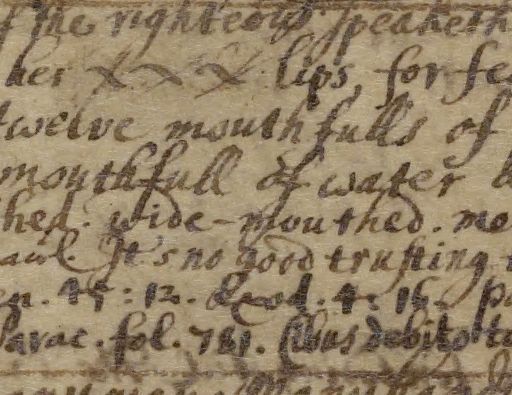 f the righteous speaketh
her x. x. x. lips, for fe
twelve mouthfulls of
mouthfull of water b
hed. wide-mouthed. me
awl. It's no good trusting
en. 45:12. Exod. 4:16. pa
Parac. fol. 781. Cibus debito to